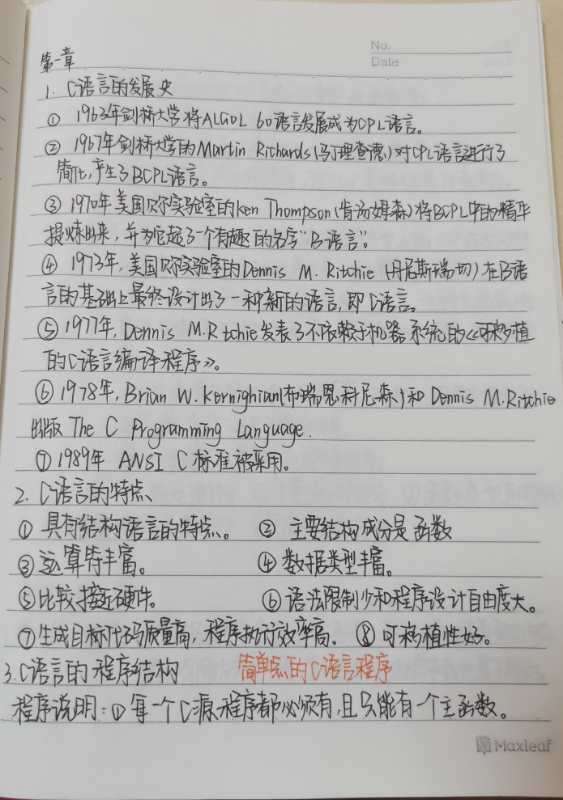 No.
Date
第一章
1. C语言的发展史
① 1963年剑桥大学将ALGOL 60语言发展成为CPL语言。
② 1967年剑桥大学的Martin Richards(马丁理查德)对CPL语言进行了
简化,产生了BCPL语言。
③ 1970年美国贝尔实验室的Ken Thompson(肯汤姆森)将BCPL中的精华
提炼出来,并为它起了一个有趣的名字“B语言”。
④ 1973年,美国贝尔实验室的Dennis M. Ritchie (丹尼斯瑞切) 在B语
言的基础上最终设计出了一种新的语言,即C语言。
⑤ 1977年, Dennis M.R tchie发表了不依赖于机器系统的《可移植
的C语言编译程序》。
⑥ 1978年, Brian W. Kernighian(布瑞恩科尼森)和 Dennis M.Ritchie
出版 The C Programming Language.
⑦ 1989年 ANSI C 标准被采用。
2. C语言的特点
① 具有结构语言的特点。 ② 主要结构成分是函数
③ 运算符丰富。 ④ 数据类型丰富。
⑤ 比较接近硬件。 ⑥ 语法限制少和程序设计自由度大。
⑦ 生成目标代码质量高,程序执行效率高. ⑧ 可移植性好。
3.C语言的程序结构 简单点的C语言程序
程序说明:① 每一个C源程序都必须有,且只能有一个主函数。
Maxleaf